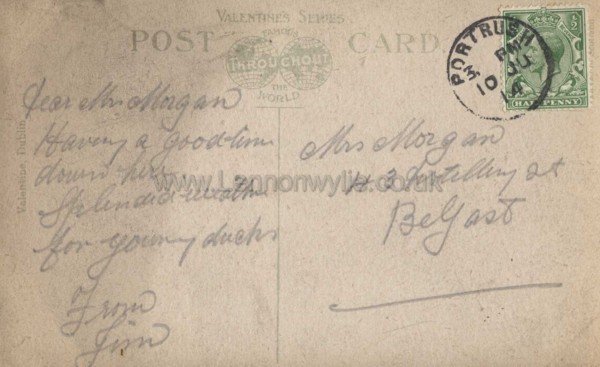 VALENTINE'S SERIES
POST CARD.
FAMOUS
THROUGHOUT
THE
WORLD
PORTRUSH
PM
10 JU
14
HALFPENNY
Valentine Dublin
Dear Mrs Morgan
Having a good time
down here
Splendid weather
for young ducks
From
Jim
Mrs Morgan
St
Belfast
www.Lennonwylie.co.uk